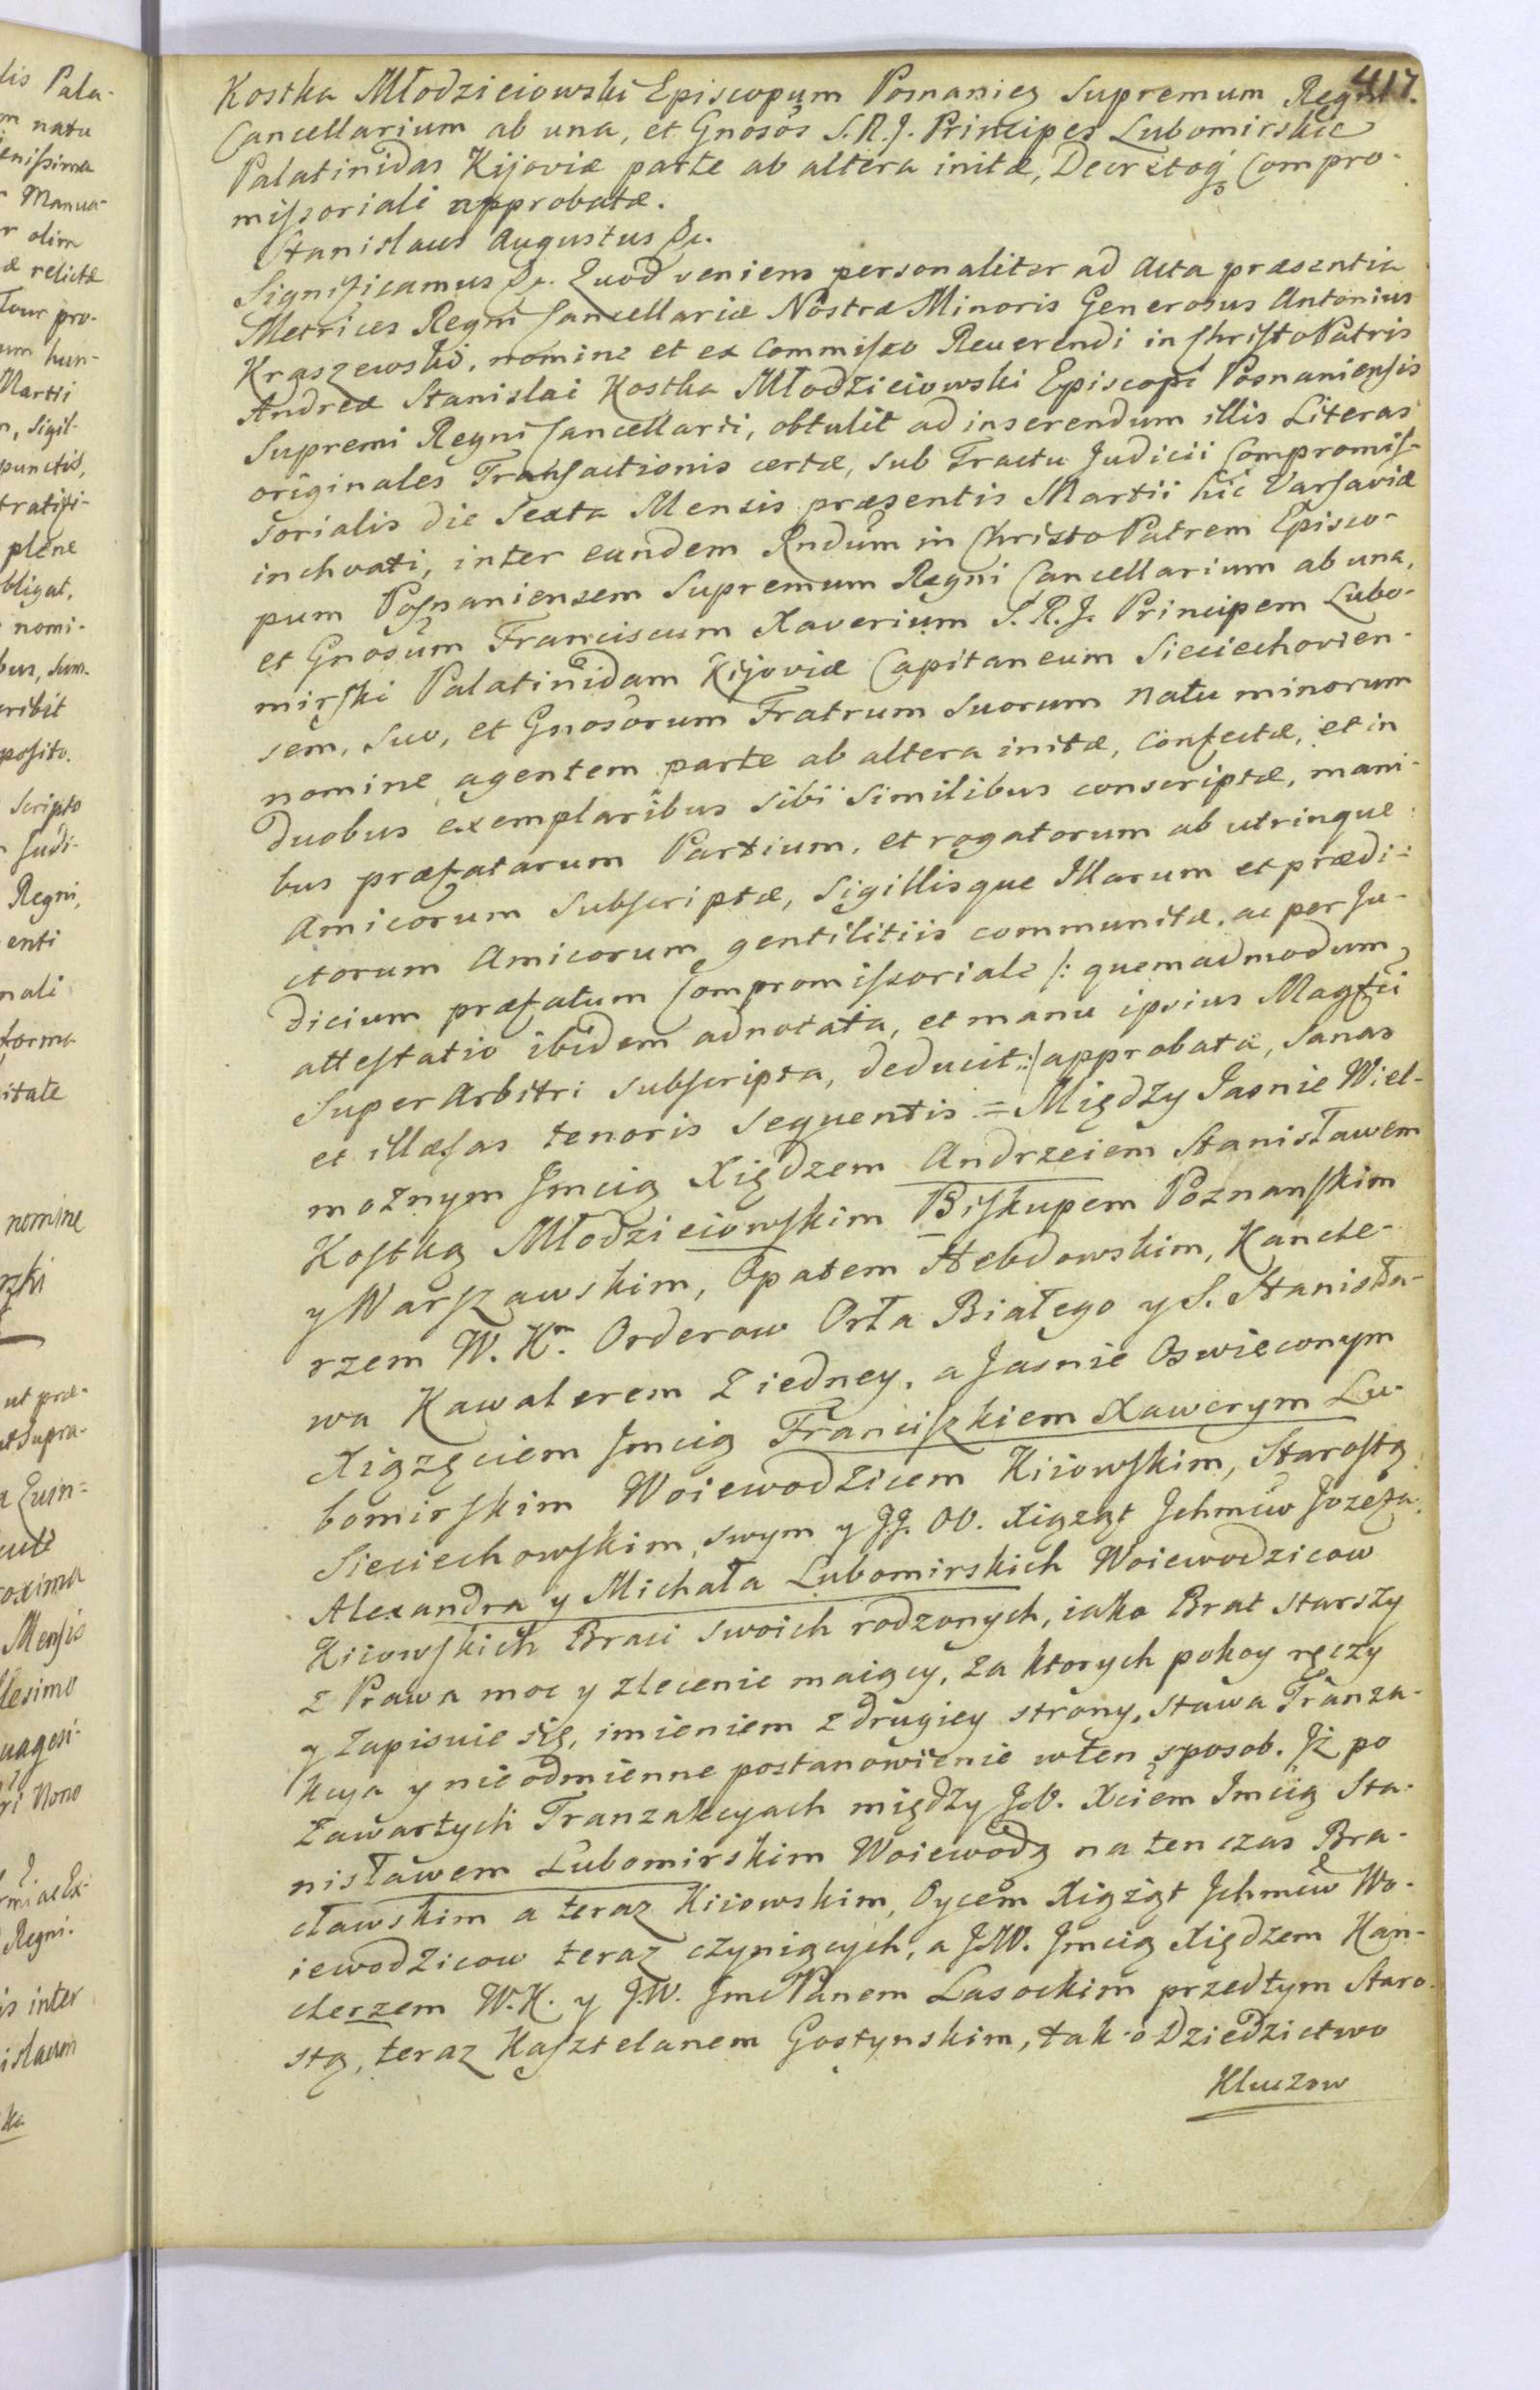 417.
Kostka Młodzieiowski Episcopum Posnanien Supremum Regni
Cancellarium ab una, et Gnosos S. R. J. Principes Lubomirskie
Palatinidas Kijoviæ parte ab altera initæ, Decretoq; Compro-
missoriali approbatæ.
Stanislaus Augustus &c.
Significamus &c. Quod veniens personaliter ad Acta præsentia
Metrices Regni Cancellariæ Nostræ Minoris Generosus Antonius
Kraszewski, nomine et ex Commisso Reverendi in Christo Patris
Andreæ Stanislai Kostka Młodzieiowski Episcopi Posnaniensis
Supremi Regni Cancellarii, obtulit ad inserendum illis Literas
originales Transactionis certæ, sub Tractu Judicii Compromis-
sorialis die Sexta Mensis præsentis Martii hic Varsaviæ
inchoati, inter eundem Rndum in Christo Patrem Episco-
pum Posnaniensem Supremum Regni Cancellarium ab una,
et Gnosum Franciscum Xaverium S. R. J. Principem Lubo-
mirski Palatinidam Kijoviæ Capitaneum Sieciechovien-
sem, suo, et Gnosorum Fratrum Suorum natu minorum
nomine agentem parte ab altera initæ, confectæ, et in
duobus exemplaribus sibi similibus conscriptæ, mani-
bus præfatarum Partium, et rogatorum ab utrinque
Amicorum Subscriptæ, Sigillisque Illarum et prædi-
ctorum Amicorum gentilitiis communitæ, ac per Ju-
dicium præfatum Compromissoriale /: quemadmodum
attestatio ibidem adnotata, et manu ipsius Magfci
Super Arbitri subscripta, deducit :/ approbatæ, sanas
et illæsas tenoris sequentis = Między Jasnie Wiel-
możnym Jmcią Xiędzem Andrzeiem Stanisławem
Kostką Młodzieiowskim Biskupem Poznanskim
y Warszawskim, Opatem Hebdowskim, Kancle-
rzem W. Kn. Orderow Orła Białego y S. Stanisła-
wa Kawalerem z iedney, a Jasnie Oswieconym
Xiązęciem Jmcią Franciszkiem Xawerym Lu-
bomirskim Woiewodzicem Kiiowskim, Starostą
Sieciechowskim, swym y JJ. OO. Xiąząt Jchmciw Jozefa,
Alexandra y Michała Lubomirskich Woiewodzicow
Kiiowskich Braci swoich rodzonych, iako Brat starszy
z Prawa moc y zlecenie maiący, za ktorych pokoy ręczy
y zapisuie się, imieniem z drugiey strony, stawa Tranza-
kcya y nieodmienne postanowienie w ten sposob. Jż po
zawartych Tranzakcyach między J.O. Xciem Jmcią Sta-
nisławem Lubomirskim Woiewodą na ten czas Bra-
cławskim a teraz Kiiowskim, Oycem Xiąząt Jchmciw Wo-
iewodzicow teraz czyniących, a J.W. Jmcią Xiędzem Kan-
clerzem W.K. y J.W. Jmc Panem Lasockim przedtym Staro-
stą, teraz Kasztelanem Gostynskim, tak o Dziedzictwo
Kluczow